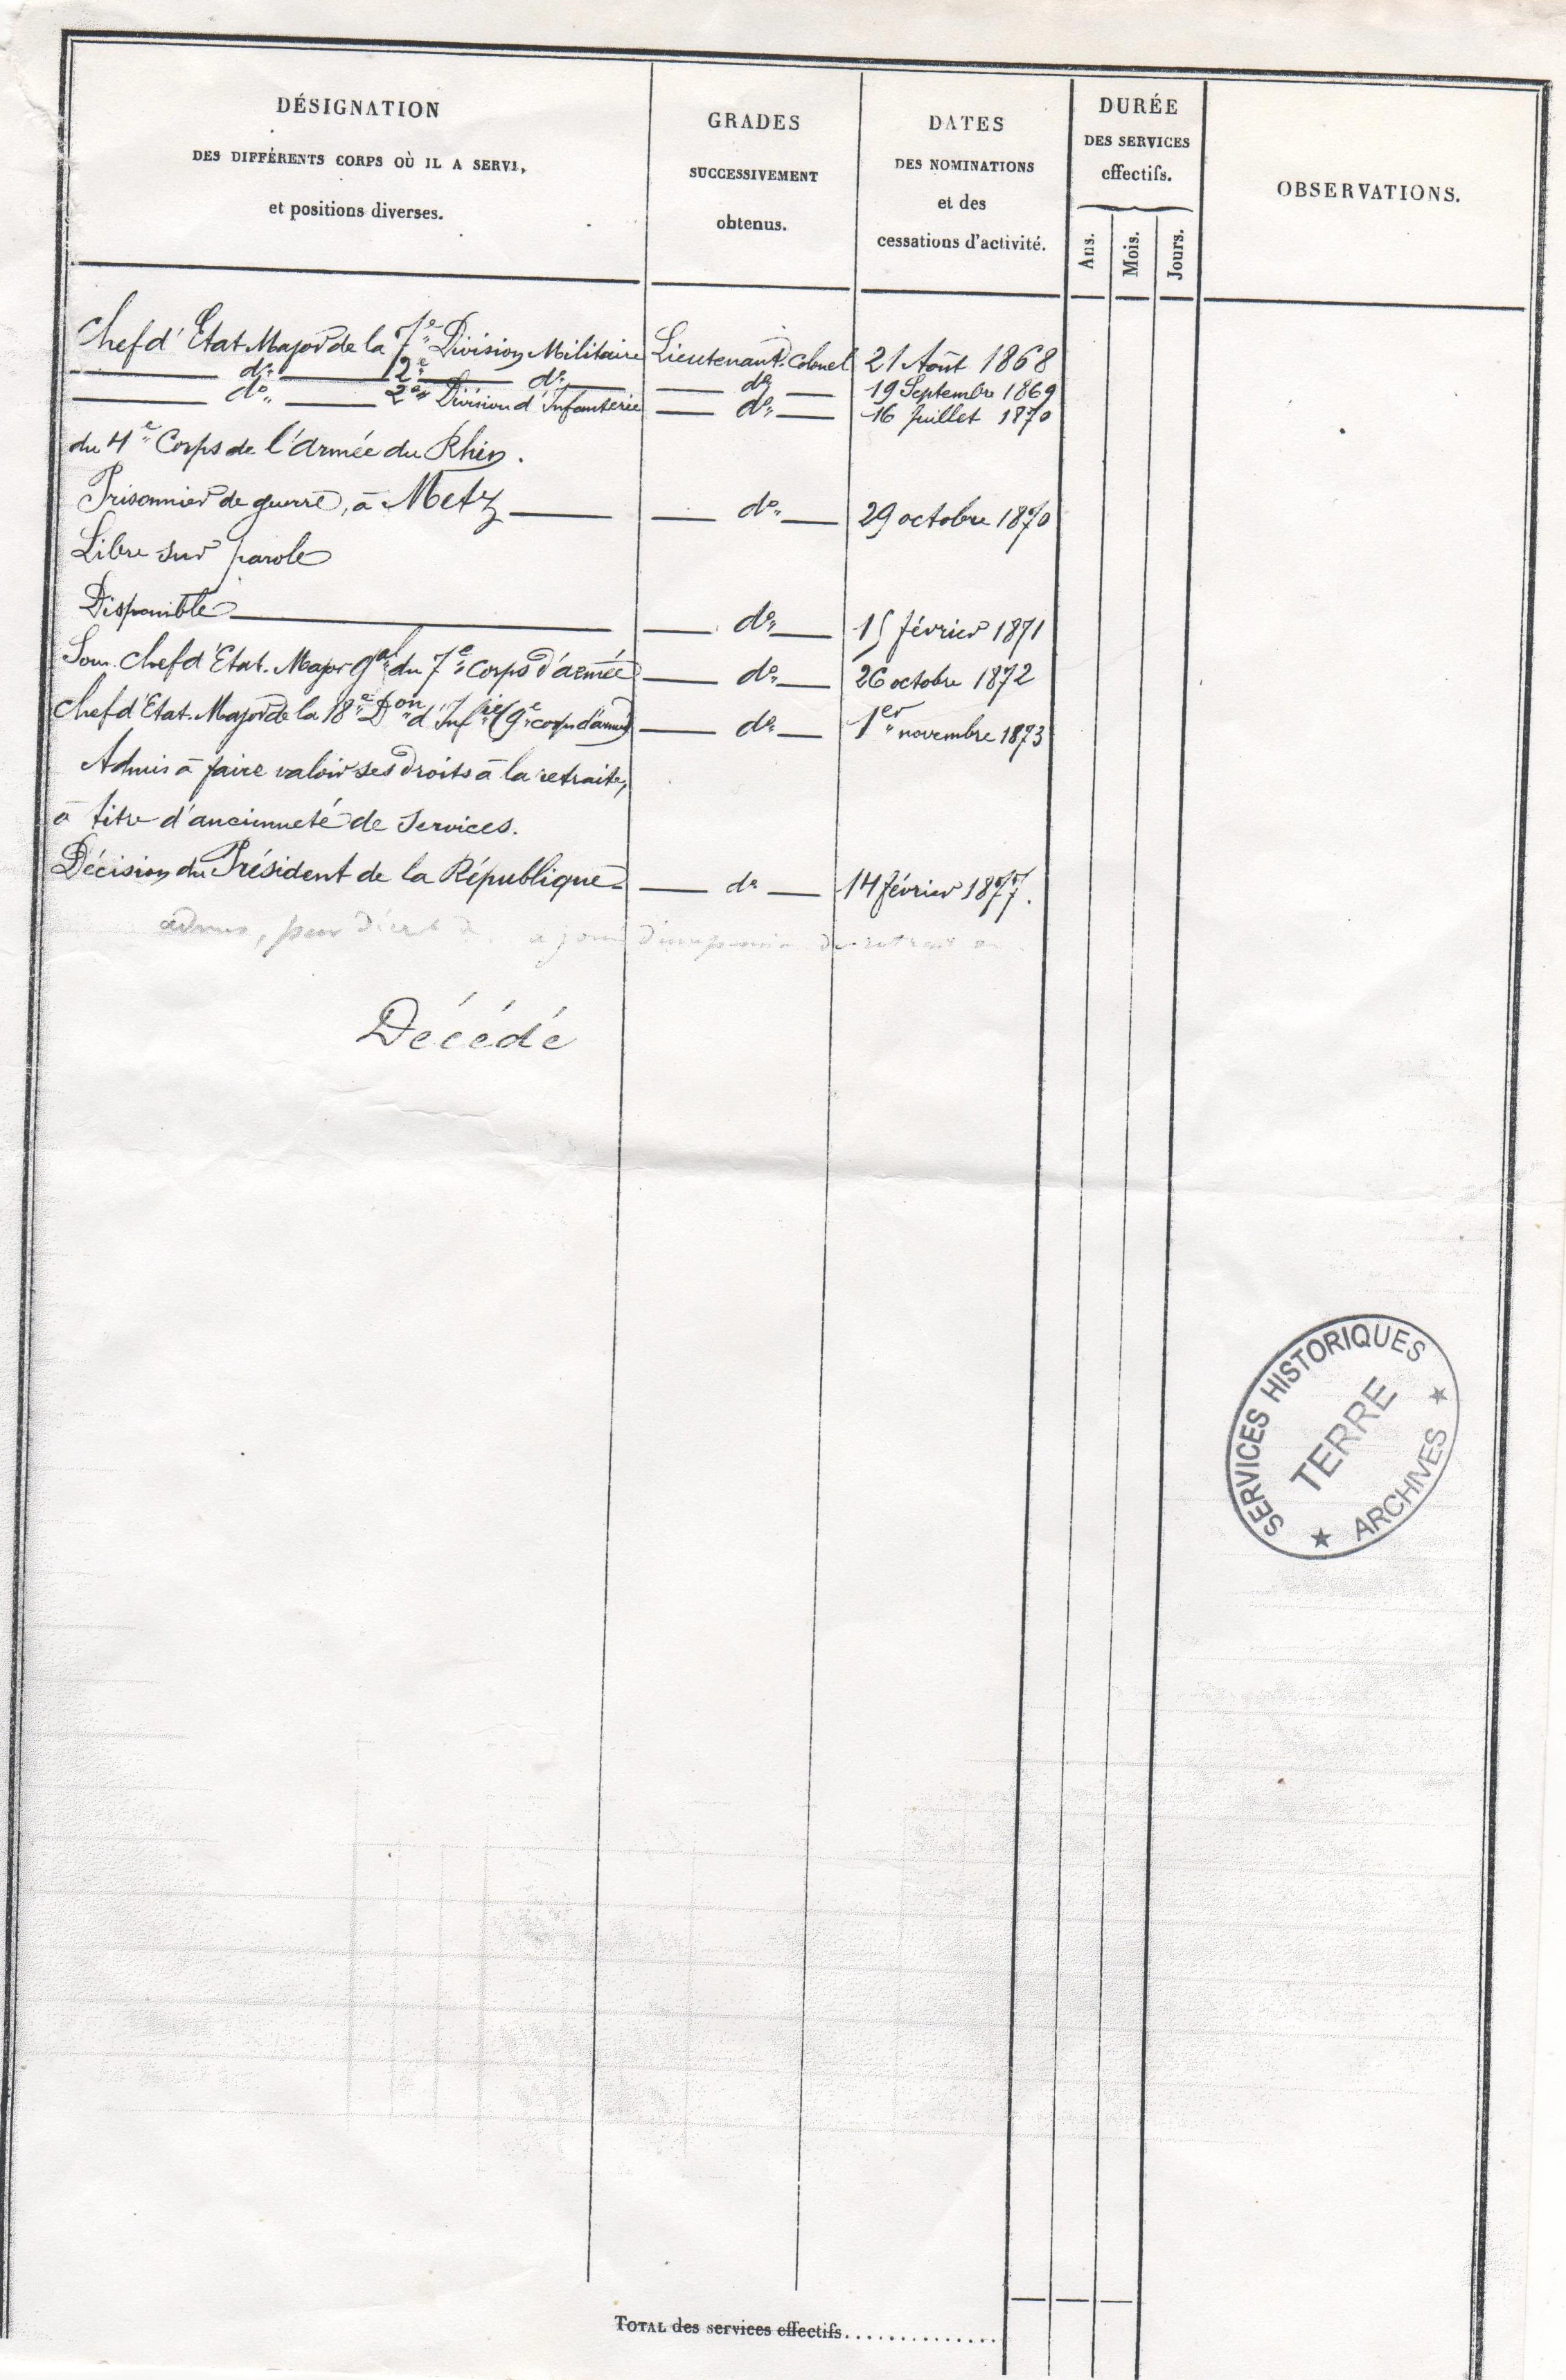 DÉSIGNATION
DES DIFFÉRENTS CORPS OÙ IL A SERVI,
et positions diverses.
GRADES
SUCCESSIVEMENT
obtenus.
DATES
DES NOMINATIONS
et des
cessations d'activité.
DURÉE
DES SERVICES
effectifs.
Ans. Mois. Jours.
OBSERVATIONS.
Chef d'État-Major de la 7e Division Militaire Lieutenant-Colonel 21 Août 1868
do 2e do do 19 Septembre 1869
do 2e Division d'Infanterie do 16 Juillet 1870
du 4e Corps de l'Armée du Rhin.
Prisonnier de guerre, à Metz do 29 octobre 1870
Libre sur parole
Disponible do 15 février 1871
Sous-Chef d'État-Major gal du 7e Corps d'armée do 26 octobre 1872
Chef d'État-Major de la 18e Don d'Infie (9e corps d'armée) do 1er novembre 1873
Admis à faire valoir ses droits à la retraite,
à titre d'ancienneté de services.
Décision du Président de la République do 14 février 1877.
admis, par
Décédé
SERVICES HISTORIQUES
TERRE
★ ARCHIVES ★
TOTAL des services effectifs..............